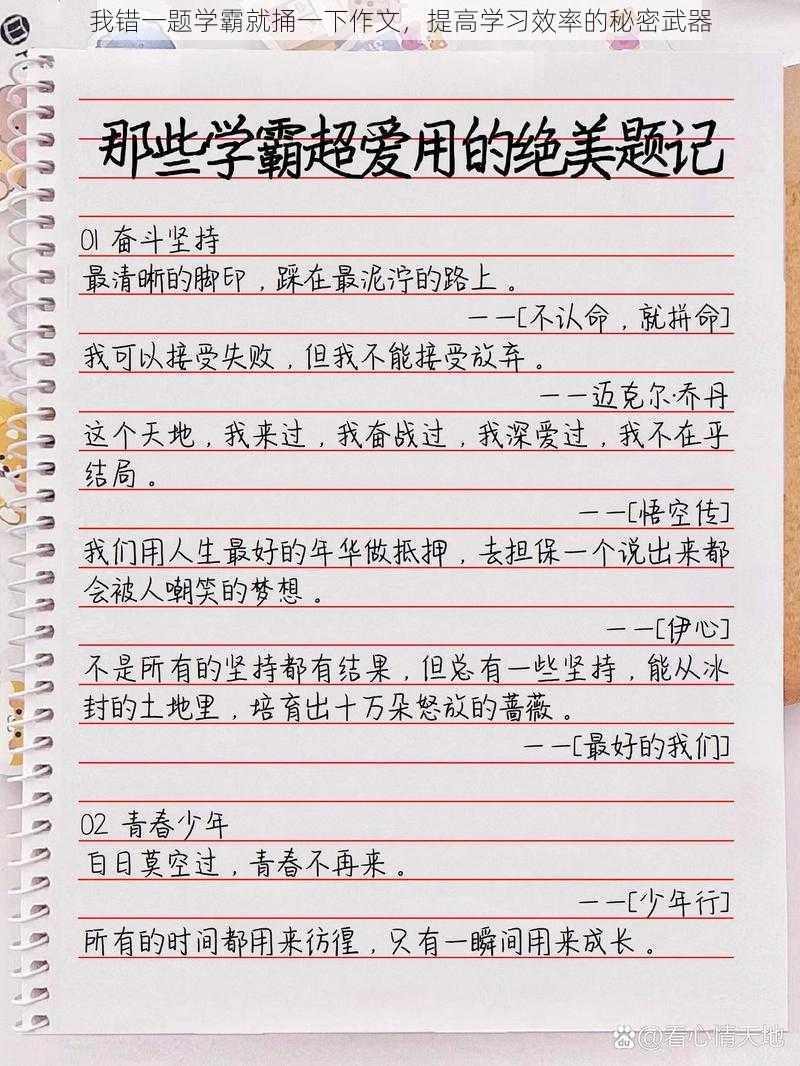 我错一题学霸就捅一下作文，提高学习效率的秘密武器
那些学霸超爱用的绝美题记
01 奋斗坚持
最清晰的脚印，踩在最泥泞的路上。
——[不认命，就拼命]
我可以接受失败，但我不能接受放弃。
——迈克尔·乔丹
这个天地，我来过，我奋战过，我深爱过，我不在乎
结局。
——[悟空传]
我们用人生最好的年华做抵押，去担保一个说出来都
会被人嘲笑的梦想。
——[伊心]
不是所有的坚持都有结果，但总有一些坚持，能从冰
封的土地里，培育出十万朵怒放的蔷薇。
——[最好的我们]
02 青春少年
白日莫空过，青春不再来。
——[少年行]
所有的时间都用来彷徨，只有一瞬间用来成长。
Bai du 百度 @看心情天地